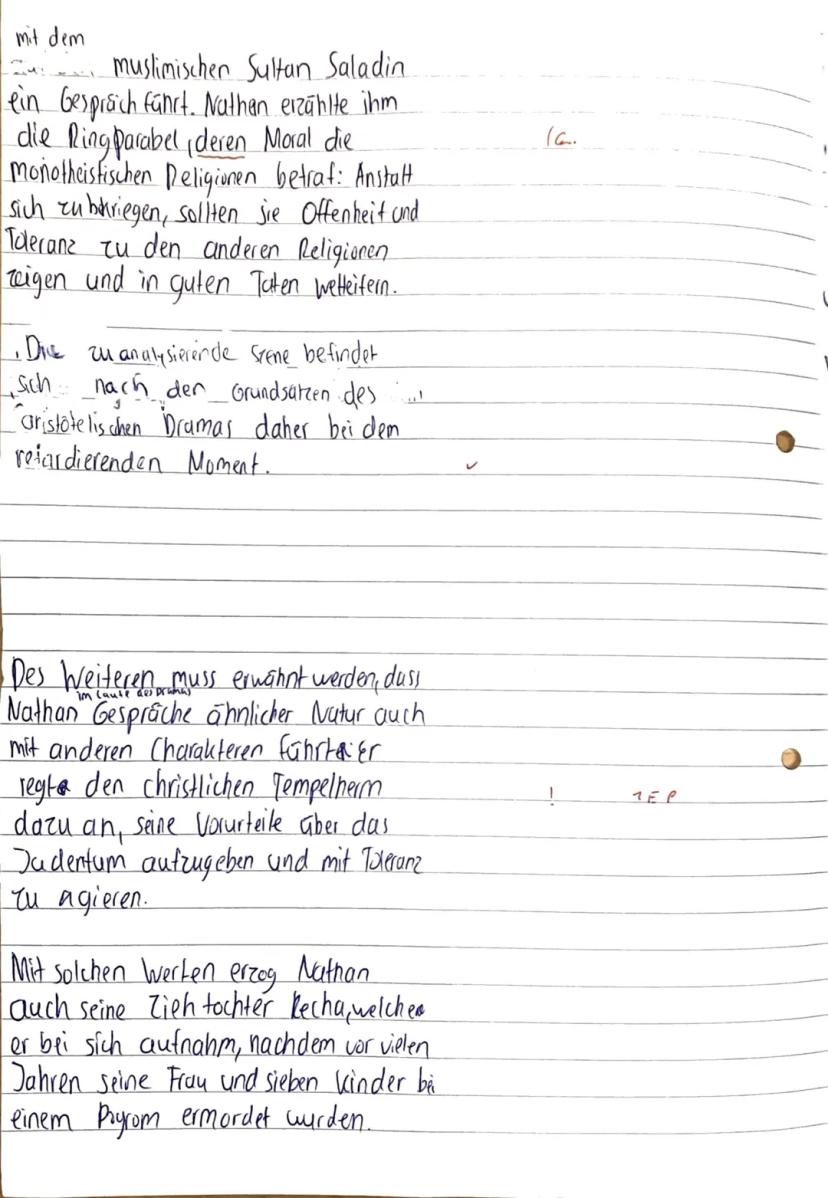 mit dem
muslimischen Sultan Saladin
ein Gespräch führt. Nathan erzählte ihm
die Ringparabel, deren Moral die
monotheistischen Religionen betraf: Anstatt
sich zu bekriegen, sollten sie Offenheit und
Toleranz zu den anderen Religionen
zeigen und in guten Taten wetteifern.
Die zu analysierende Szene befindet
sich nach den Grundsätzen des
aristotelischen Dramas daher bei dem
retardierenden Moment.
Des Weiteren muss erwähnt werden, dass
im Laufe des Dramas
Nathan Gespräche ähnlicher Natur auch
mit anderen Charakteren führt. Er
regte den christlichen Tempelherrn
! 1EP
dazu an, seine Vorurteile über das
Judentum aufzugeben und mit Toleranz
zu agieren.
Mit solchen Werten erzog Nathan
auch seine Ziehtochter Recha, welche
er bei sich aufnahm, nachdem vor vielen
Jahren seine Frau und sieben Kinder bei
einem Pogrom ermordet wurden.